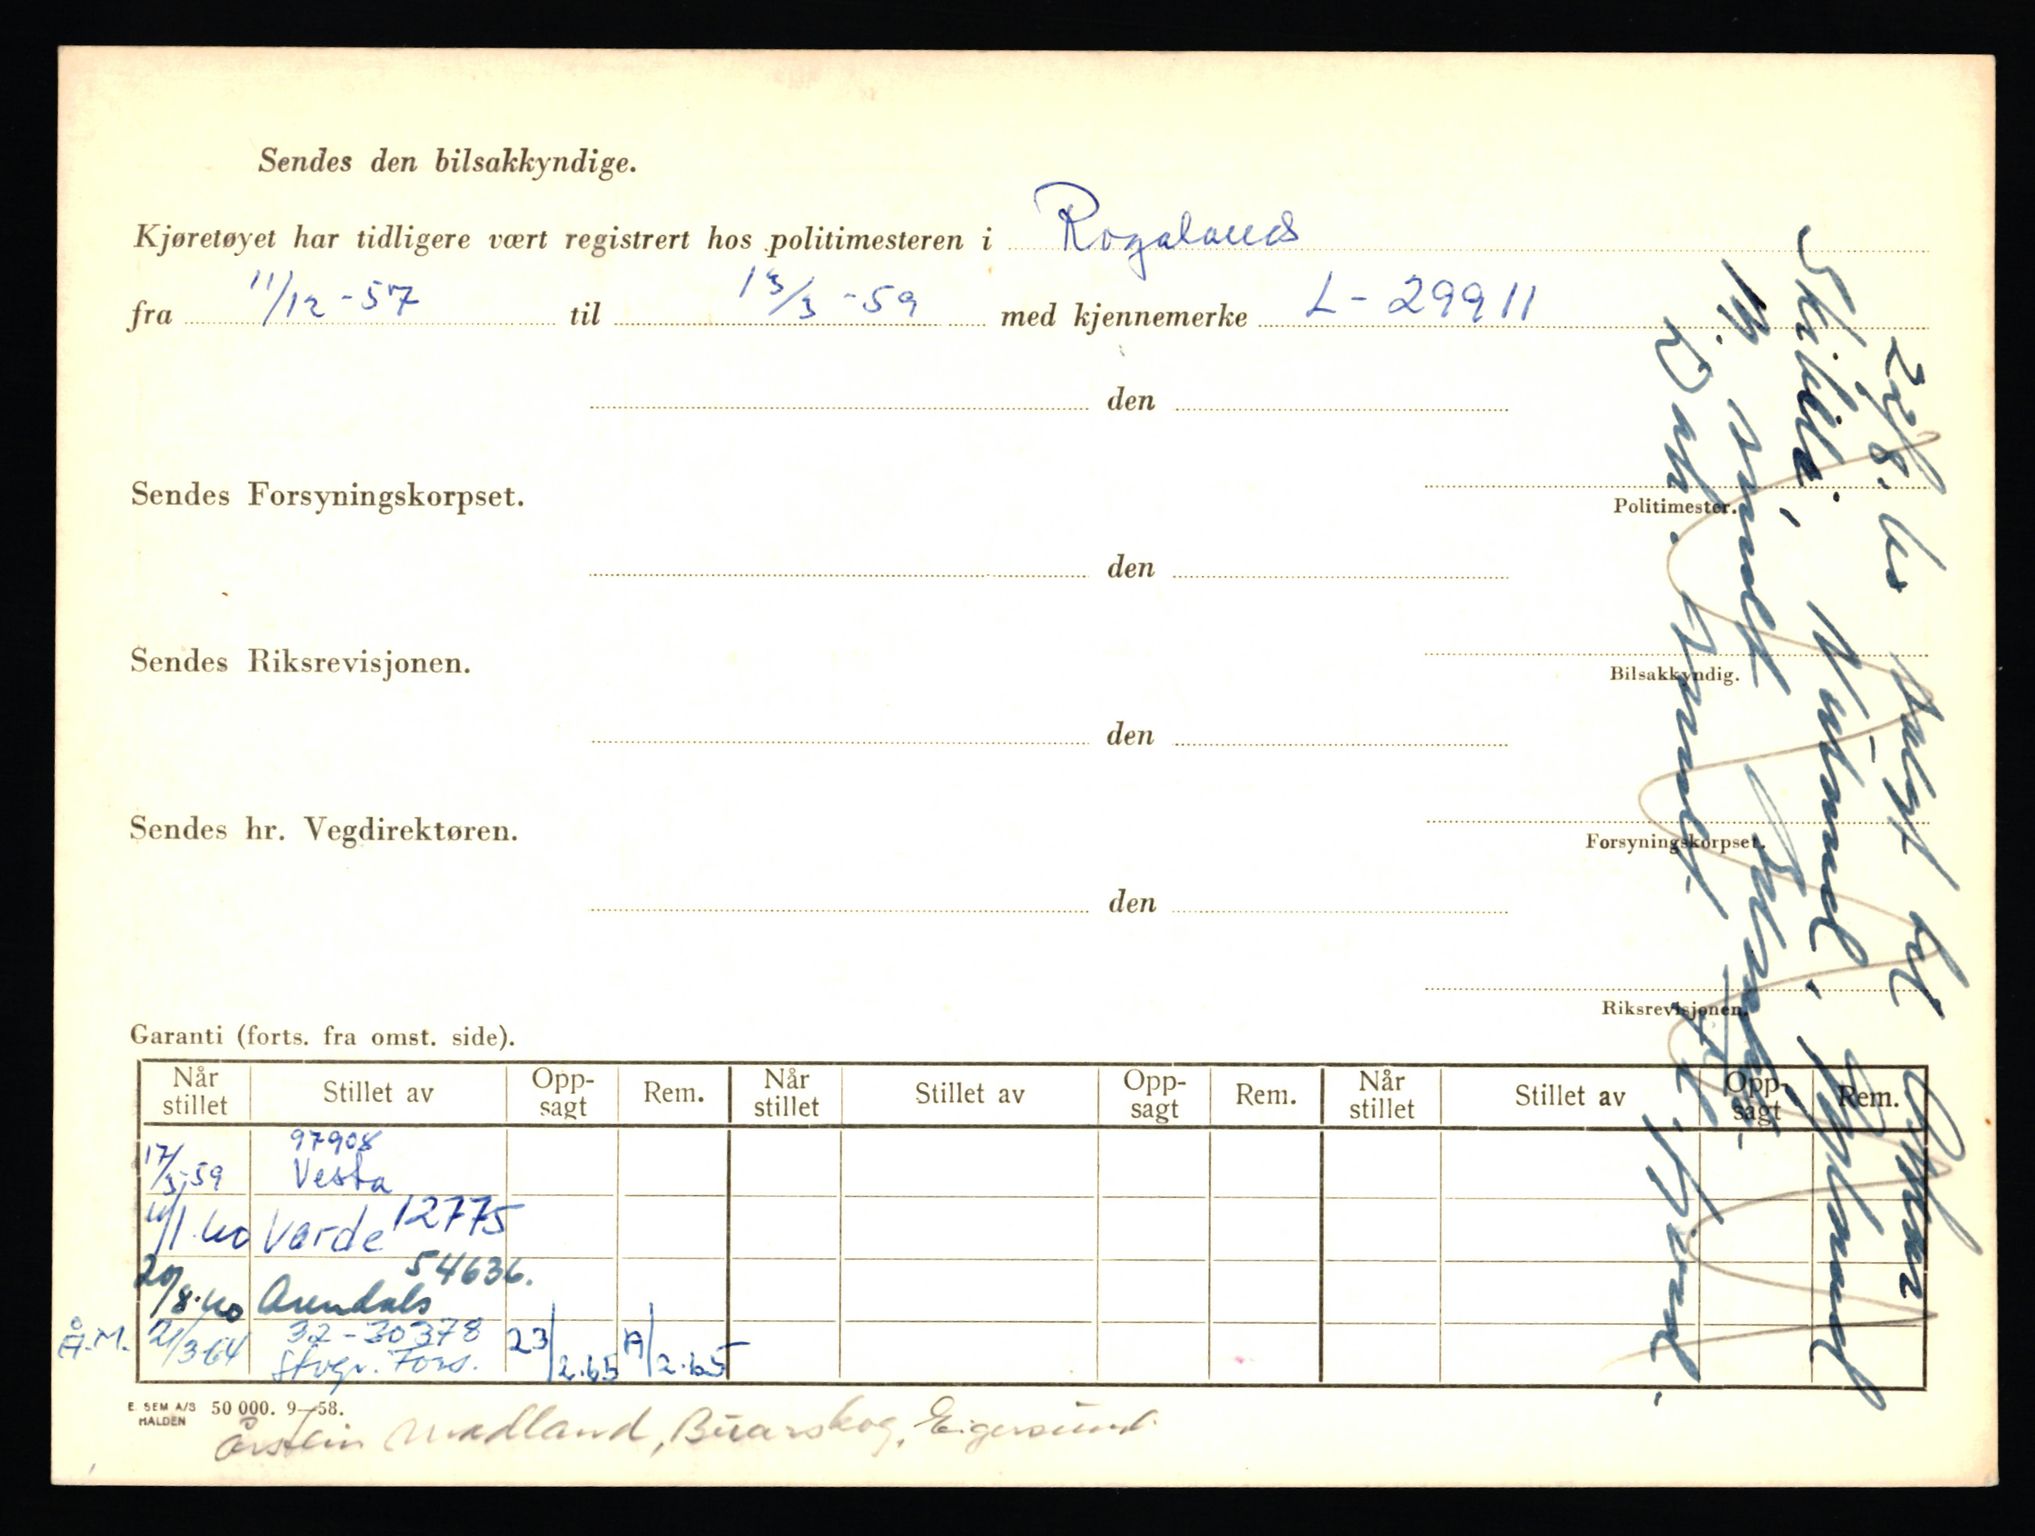 Sendes den bilsakkyndige.
Kjøretøyet har tidligere vært registrert hos politimesteren i Rogaland
fra 11/12-57 til 13/3-59 med kjennemerke L-29911
den
Sendes Forsyningskorpset.
Politimester.
den
Sendes Riksrevisjonen.
Bilsakkyndig.
den
Sendes hr. Vegdirektøren.
Forsyningskorpset.
den
Riksrevisjonen.
Garanti (forts. fra omst. side).
Når stillet Stillet av Opp-sagt Rem. Når stillet Stillet av Opp-sagt Rem. Når stillet Stillet av Opp-sagt Rem.
97908
17/3-59 Vesta
11/1.60 Varde 12775
54636.
20/8.60 Arendals
32-30378
Å.M. 21/3-64 Stvgr. Fors. 23/2.65 A/2.65
E. SEM A/S HALDEN 50 000. 9—58.
Årstein Madland, Buarskog, Eigersund.
22/8. 60 solgt til